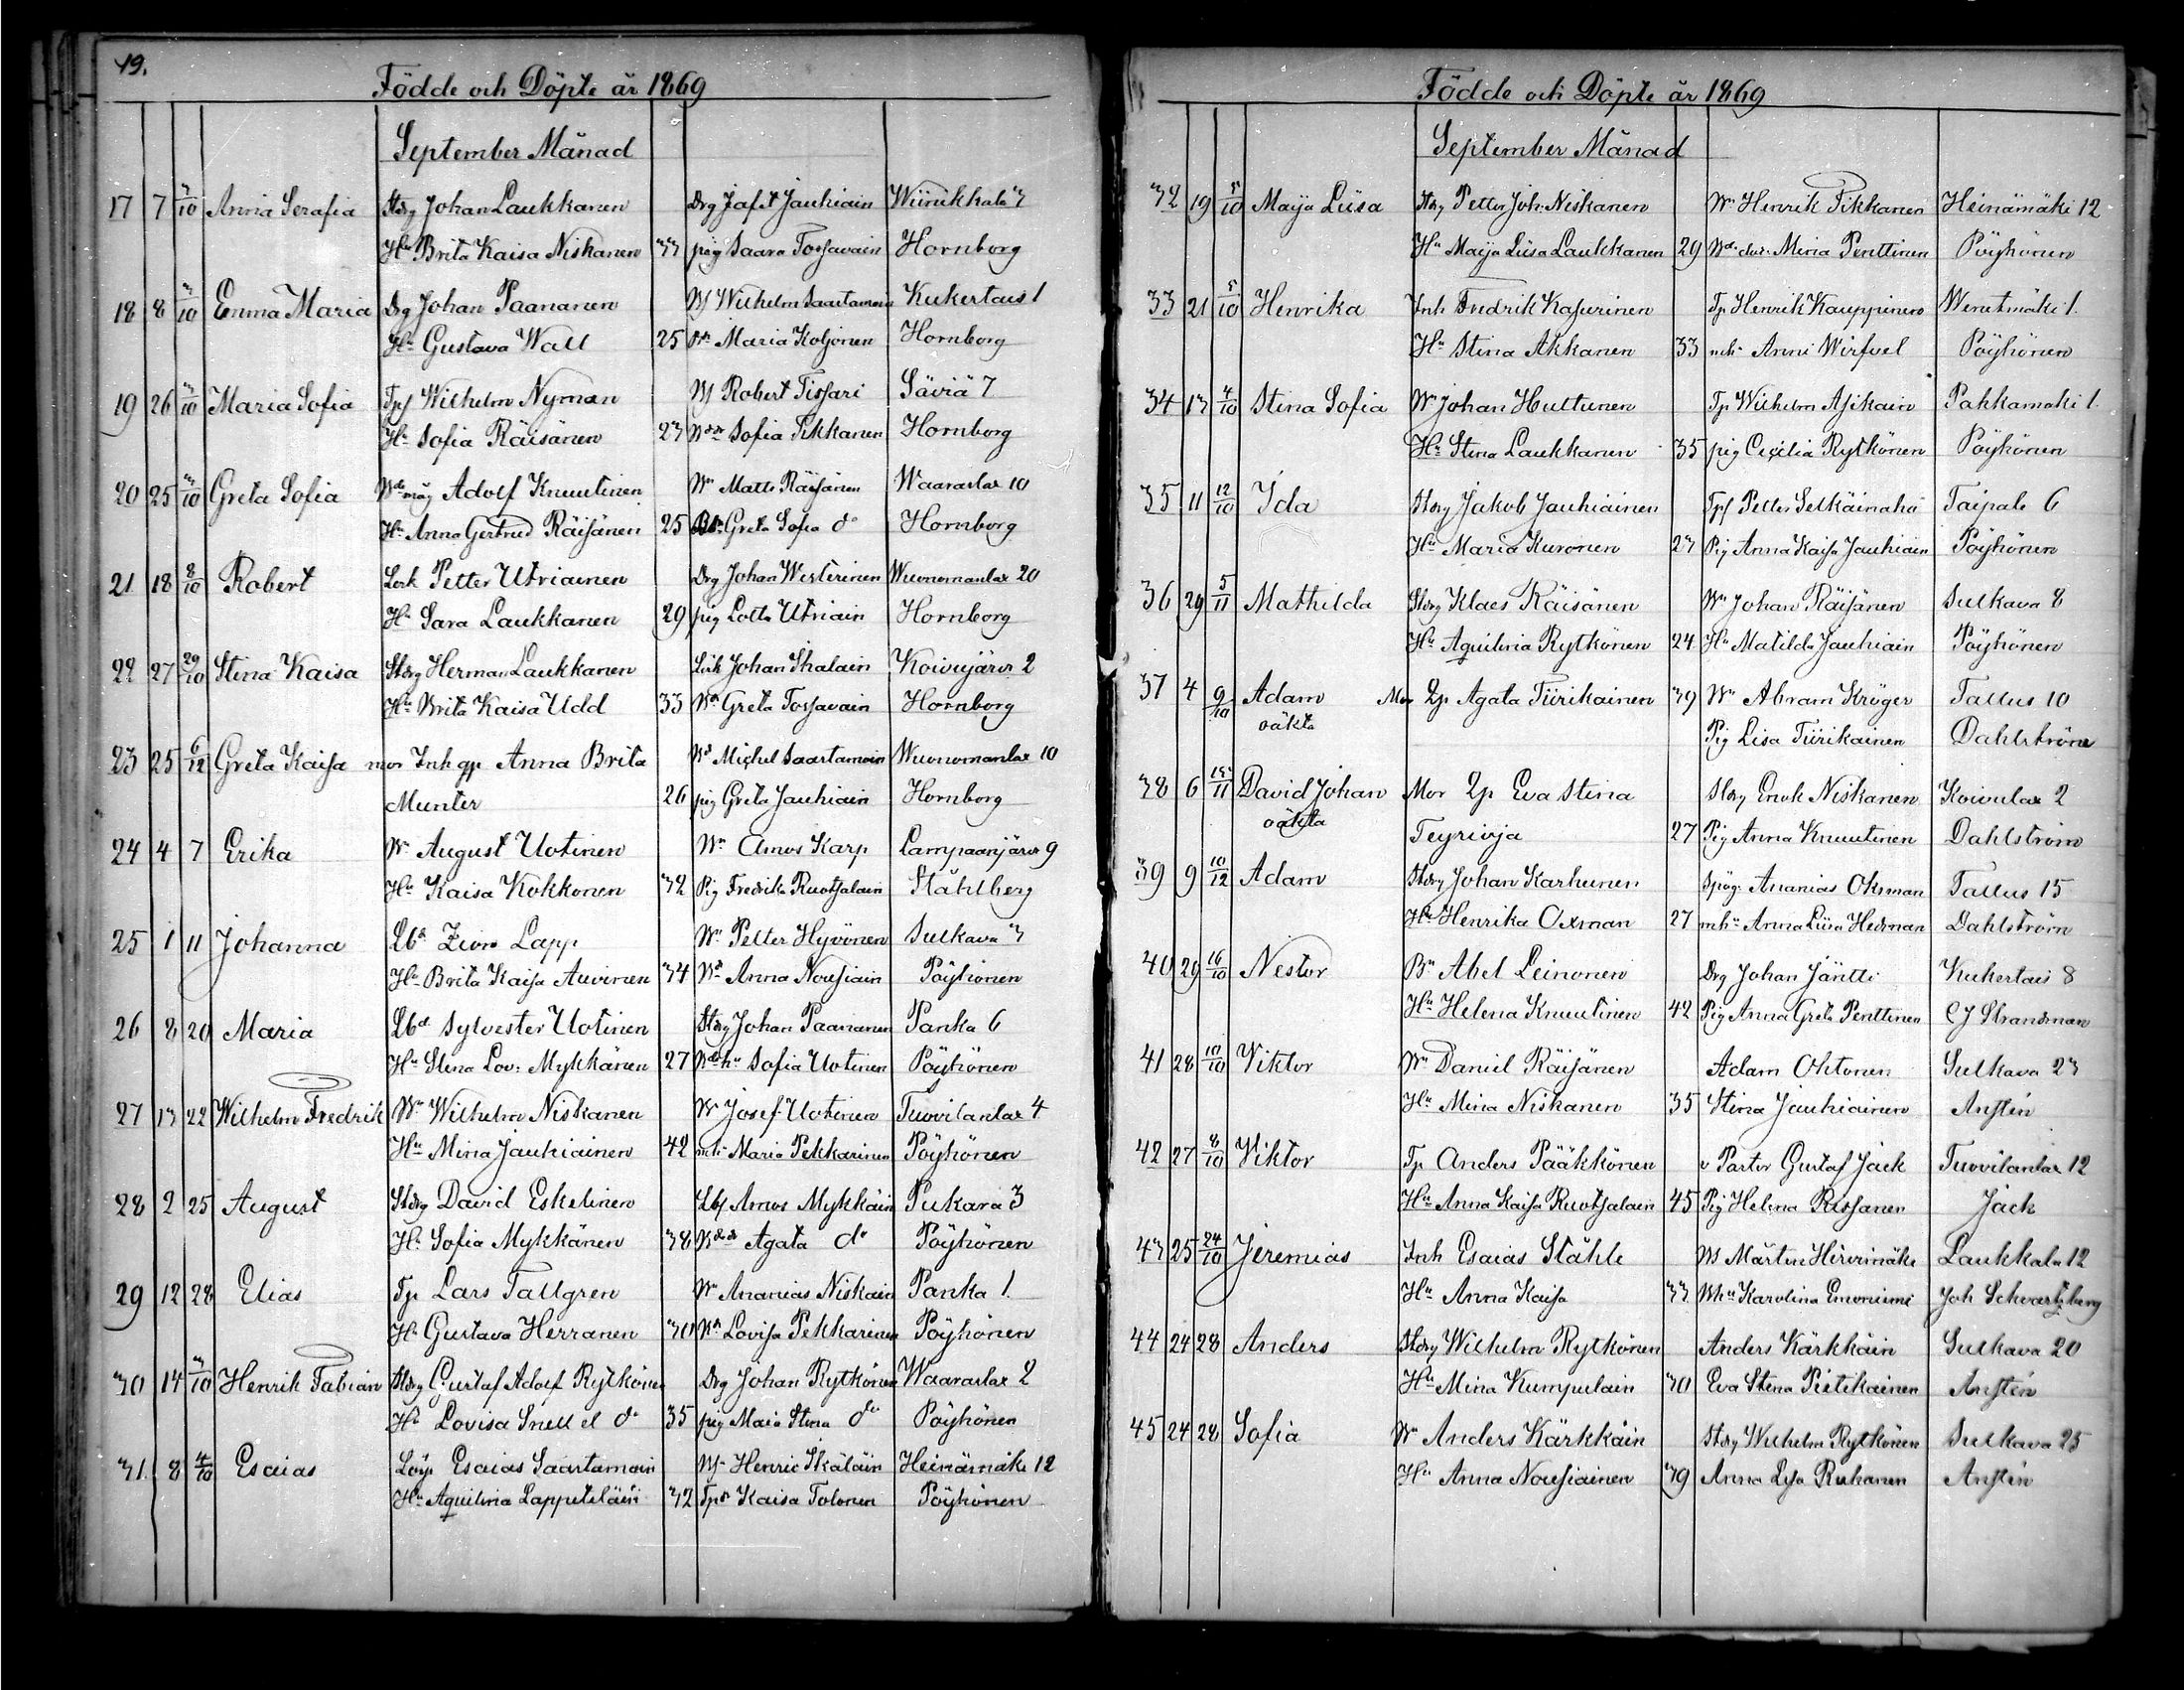 19.
Födde och Döpte år 1869
September Månad
17 7 3/10 Anna Serafia Stdrg Johan Laukkanen Drg Jafet Jauhiain Wiinikkala 3
Hu Brita Kaisa Niskanen 33 pig Saara Tossavain Hornborg
18 8 3/10 Emma Maria Drg Johan Paananen Wilhelm Saastamoin Kukertais 1
Hu Gustava Wall 25 Maria Koljonen Hornborg
19 26 3/10 Maria Sofia Tpf Wilhelm Nyman Robert Tissari Säviä 7
Hu Sofia Räisänen 23 Sofia Pikkanen Hornborg
20 25 3/10 Greta Sofia Wds måg Adolf Knuutinen Wn Matts Räisänen Waaraslax 10
Hu Anna Gertrud Räisänen 25 Greta Sofia do Hornborg
21 18 8/10 Robert Petter Utriainen Drg Johan Westerinen Wuonomanlax 20
Hu Sara Laukkanen 29 pig Lotta Utriain Hornborg
22 27 29/10 Stina Kaisa Stdrg Herman Laukkanen Johan Ihalain Koivujärvi 2
Hu Brita Kaisa Udd 33 Greta Tossavain Hornborg
23 25 6/12 Greta Kaisa mor Inh gp Anna Brita Michel Saastamoin Wuonomanlax 10
Munter 26 pig Greta Jauhiain Hornborg
24 4 7 Erika Wn August Uotinen Wn Amos Karp Lampaanjärvi 9
Hu Kaisa Kokkonen 32 Pig Fredrika Ruotsalain Ståhlberg
25 1 11 Johanna Zion Lapp Wn Petter Hyvönen Sulkava 3
Hu Brita Kaisa Auvinen 34 Anna Nousiain Pöyhönen
26 8 20 Maria Sylvester Uotinen Stdrg Johan Paananen Panka 6
Hu Stina Lov: Mykkänen 27 Sofia Uotinen Pöyhönen
27 13 22 Wilhelm Fredrik Wn Wilhelm Niskanen Wn Josef Uotinen Tuovilanlax 4
Hu Mina Jauhiainen 42 mh: Maria Pekkarinen Pöyhönen
28 2 25 August Stdrg David Eskelinen Amos Mykkäin Pukara 3
Hu Sofia Mykkänen 38 Agata do Pöyhönen
29 12 28 Elias Tp Lars Tallgren Wn Ananias Niskain Panka 1
Hu Gustava Herranen 30 Lovisa Pekkarinen Pöyhönen
30 14 3/10 Henrik Fabian Stdrg Gustaf Adolf Rytkönen Drg Johan Rytkönen Waaraslax 2
Hu Lovisa Snell el do 35 pig Maia Stina do Pöyhönen
31 8 4/10 Esaias Esaias Saastamoin Henric Ikäläin Heinämäki 12
Hu Aquilina Lappeteläin 32 Kaisa Tolonen Pöyhönen
Födde och Döpte år 1869
September Månad
32 19 5/10 Maija Liisa Stdrg Petter Joh: Niskanen Wn Henrik Pikkanen Heinämäki 12
Hu Maija Liisa Laukkanen 29 Mina Penttinen Pöyhönen
33 21 5/10 Henrika Inh Fredrik Kasurinen Tp Henrik Kauppinen Wenetmäki 1.
Hu Stina Akkanen 33 mh: Anni Wirfvel Pöyhönen
34 13 4/10 Stina Sofia Wn Johan Huttunen Tp Wilhelm Asikain Pakkamäki 1
Hu Stina Laukkanen 35 pig Cecilia Rytkönen Pöyhönen
35 11 12/10 Ida Stdrg Jakob Jauhiainen Tpf Petter Selkäinaho Taipale 6
Hu Maria Kuronen 23 Pig Anna Kaisa Jauhiain Pöyhönen
36 29 5/11 Mathilda Stdrg Klaes Räisänen Wn Johan Räisänen Sulkava 8
Hu Aquilina Rytkönen 24 Hu Matilda Jauhiain Pöyhönen
37 4 9/10 Adam Mor Qp Agata Tiirikainen 39 Wn Abram Kröger Tallus 10
oäkta Pig Lisa Tiirikainen Dahlström
38 6 13/11 David Johan Mor Qp Eva Stina Stdrg Enok Niskanen Koivulax 2
oäkta Teyrivja 27 Pig Anna Knuutinen Dahlström
39 9 10/12 Adam Stdrg Johan Karhunen Ananias Oksman Tallus 15
Hu Henrika Oxman 27 mhu Anna Liisa Hedman Dahlström
40 29 16/10 Nestor Bn Abel Leinonen Drg Johan Jäntti Kukertais 8
Hu Helena Knuutinen 42 Pig Anna Greta Penttinen C J Strandman
41 28 10/10 Viktor Wn Daniel Räisänen Adam Ohtonen Sulkava 23
Hu Mina Niskanen 35 Stina Jauhiainen Anstén
42 27 8/10 Viktor Tp Anders Pääkkönen v Pastor Gustaf Jack Tuovilanlax 12
Hu Anna Kaisa Ruotsalain 45 Pig Helena Rissanen Jack
43 25 24/10 Jeremias Inh Esaias Ståhle Mårten Hirvimäki Laukkala 12
Hu Anna Kaisa 33 Karolina Joh Schvartzberg
44 24 28 Anders Stdrg Wilhelm Rytkönen Anders Kärkkäin Sulkava 20
Hu Mina Kumpulain 30 Eva Stina Pietikainen Anstén
45 24 28 Sofia Wn Anders Kärkkäin Stdrg Wilhelm Rytkönen Sulkava 25
Hu Anna Nousiainen 39 Anna Lisa Ruhanen Anstén